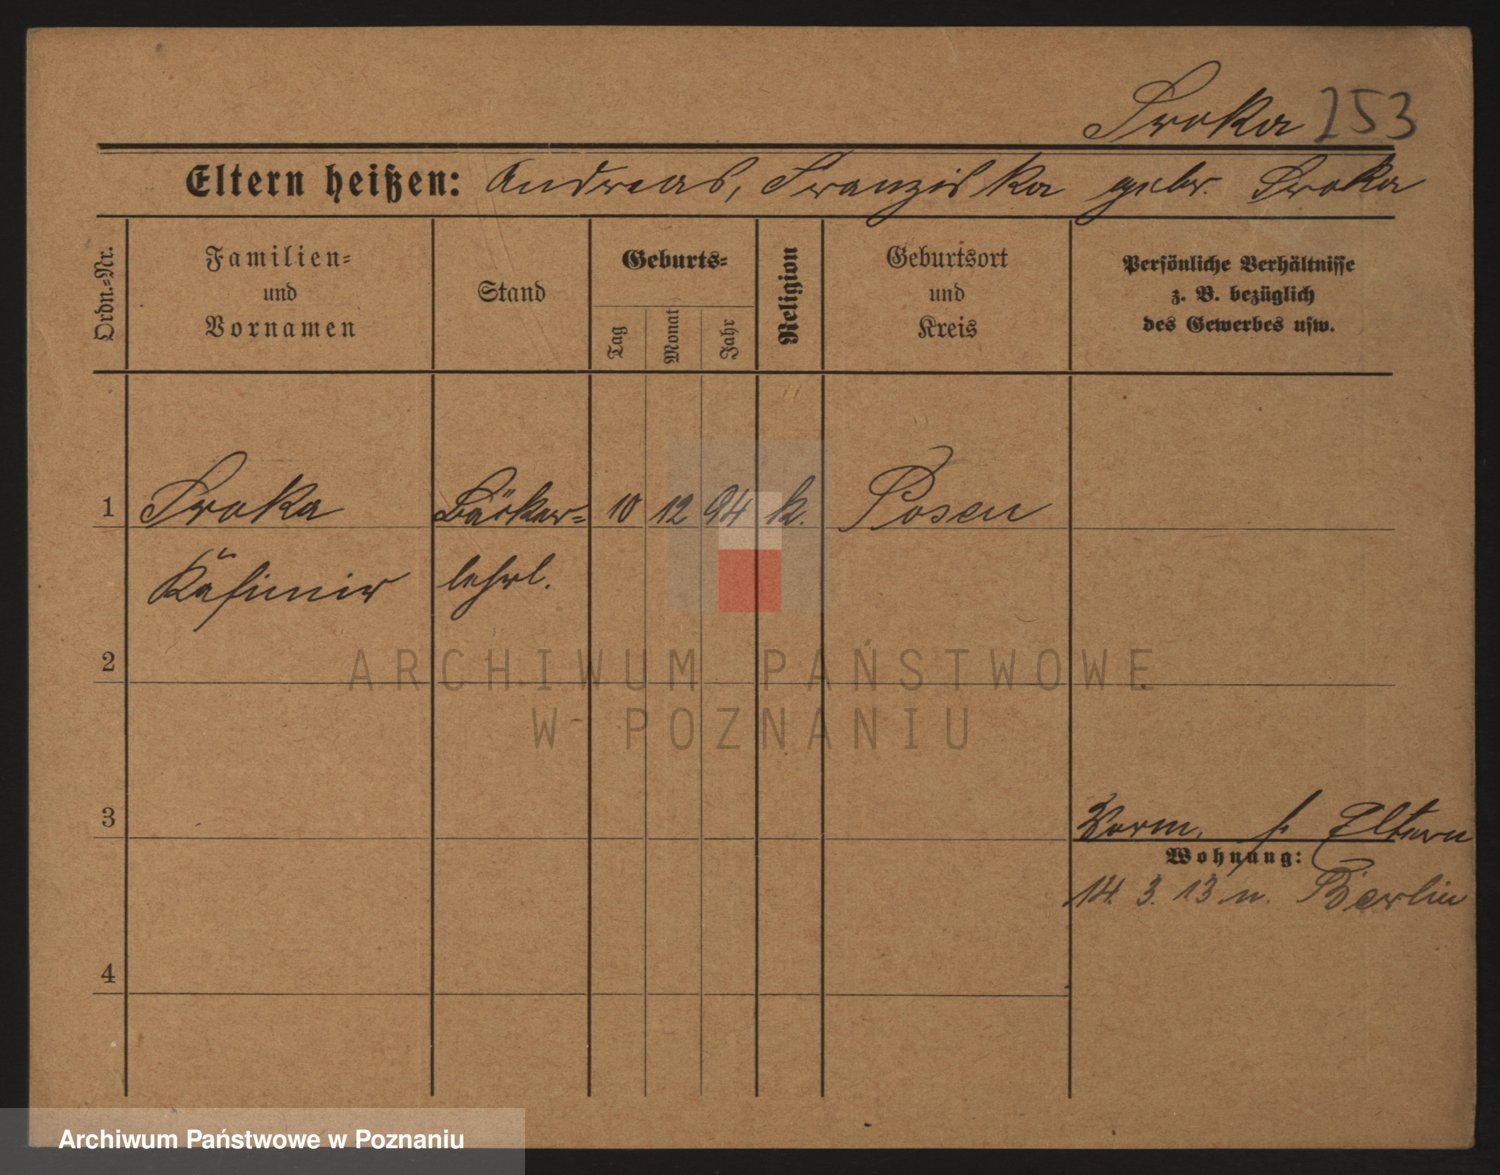 Sroka 253
Eltern heißen: Andreas, Franziska gebr. Sroka
Ordn.=Nr.
Familien=
und
Vornamen
Stand
Geburts=
Tag
Monat
Jahr
Religion
Geburtsort
und
Kreis
Persönliche Verhältnisse
z. B. bezüglich
des Gewerbes usw.
1 Sroka Bäcker= 10 12 94 k. Posen
Kasimir lehrl.
2
3
Verm. s. Eltern
Wohnung:
14. 3. 13 n. Berlin
4
ARCHIWUM PAŃSTWOWE
W POZNANIU
Archiwum Państwowe w Poznaniu